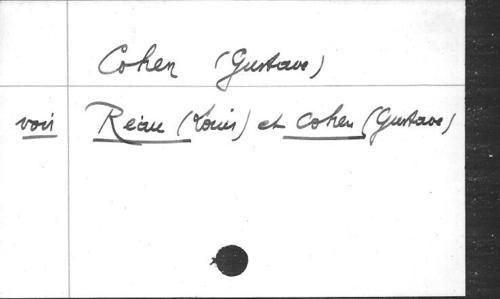 Cohen (Gustave)
voir Réau (Louis) et Cohen (Gustave)